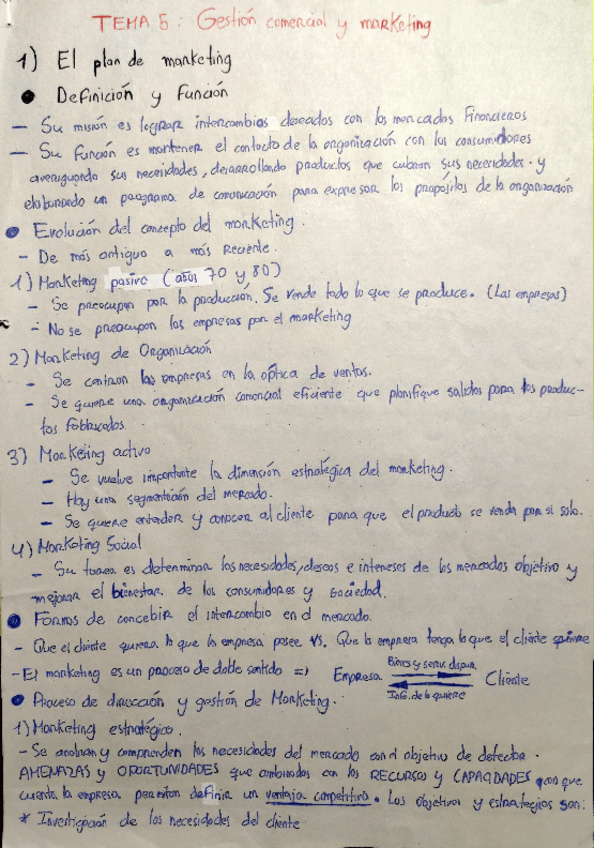 TEMA 5: Gestión comercial y marketing
1) El plan de marketing
● Definición y función
- Su misión es lograr intercambios deseados con los mercados financieros
- Su función es mantener el contacto de la organización con los consumidores
averiguando sus necesidades, desarrollando productos que cubran sus necesidades. y
elaborando un programa de comunicación para expresar los propósitos de la organización
● Evolución del concepto del marketing.
- De más antiguo a más reciente.
1) Marketing pasivo (años 70 y 80)
- Se preocupan por la producción. Se vende todo lo que se produce. (Las empresas)
- No se preocupan las empresas por el marketing
2) Marketing de Organización
- Se centran las empresas en la óptica de ventas.
- Se quiere una organización comercial eficiente que planifique salidas para los produc-
tos fabricados.
3) Marketing activo
- Se vuelve importante la dimensión estratégica del marketing.
- Hay una segmentación del mercado.
- Se quiere entender y conocer al cliente para que el producto se venda por si solo.
4) Marketing Social
- Su tarea es determinar las necesidades, deseos e intereses de los mercados objetivo y
mejorar el bienestar de los consumidores y sociedad.
● Formas de concebir el intercambio en el mercado.
- Que el cliente quiera lo que la empresa posee VS. Que la empresa tenga lo que el cliente quiere
- El marketing es un proceso de doble sentido => Empresa Bienes y serv. dispon. Cliente
Info. de lo quiere
● Proceso de dirección y gestión de Marketing.
1) Marketing estratégico.
- Se analizan y comprenden las necesidades del mercado con el objetivo de detectar.
AMENAZAS y OPORTUNIDADES que combinados con los RECURSOS y CAPACIDADES con que
cuenta la empresa permitan definir una ventaja competitiva. Los objetivos y estrategias son:
* Investigación de las necesidades del cliente